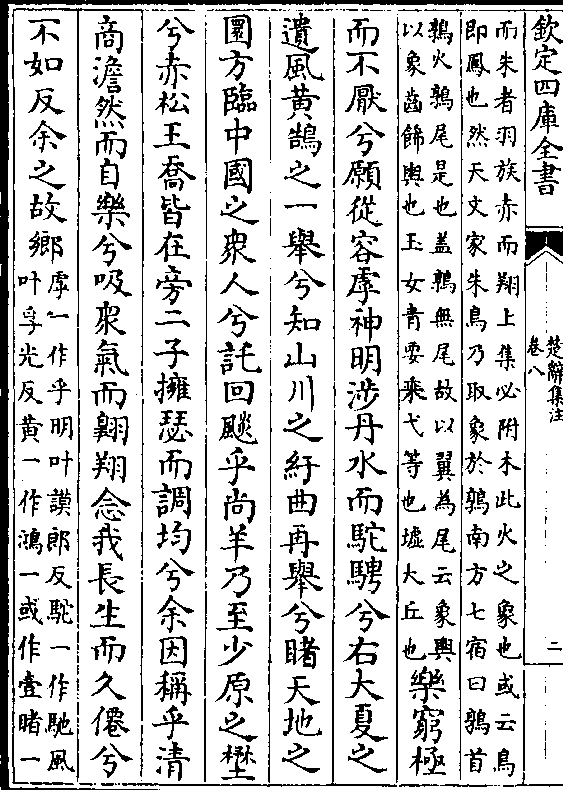 欽定四庫全書
楚辭集注
卷八
二
而朱者羽族赤而翔上集必附木此火之象也或云鳥
即鳳也然天文家朱鳥乃取象於鶉南方七宿曰鶉首
鶉火鶉尾是也盖鶉無尾故以翼為尾云象輿
以象齒飾輿也玉女青要乗弋等也墟大丘也
樂窮極
而不厭兮願從容虖神明涉丹水而駝騁兮右大夏之
遺風黄鵠之一舉兮知山川之紆曲再舉兮睹天地之
圜方臨中國之衆人兮託回飈乎尚羊乃至少原之壄
兮赤松王喬皆在旁二子擁瑟而調均兮余因稱乎清
商澹然而自樂兮吸衆氣而翺翔念我長生而久僊兮
不如反余之故鄉
虖一作乎明叶謨郎反駝一作馳風
叶孚光反黄一作鴻一或作壹睹一